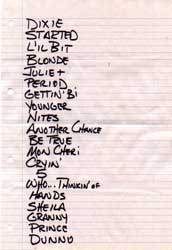 DIXIE
STARTED
L'IL BIT
BLONDE
JULIET
PERIOD
GETTIN' BI
YOUNGER
NITES
ANOTHER CHANCE
BE TRUE
MON CHERI
CRYIN'
5
WHO... THINKIN' OF
HANDS
SHEILA
GRANNY
PRINCE
DUNNO